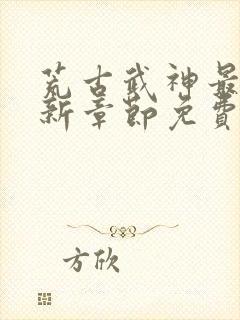 荒古武神最
新章節免費
方欣